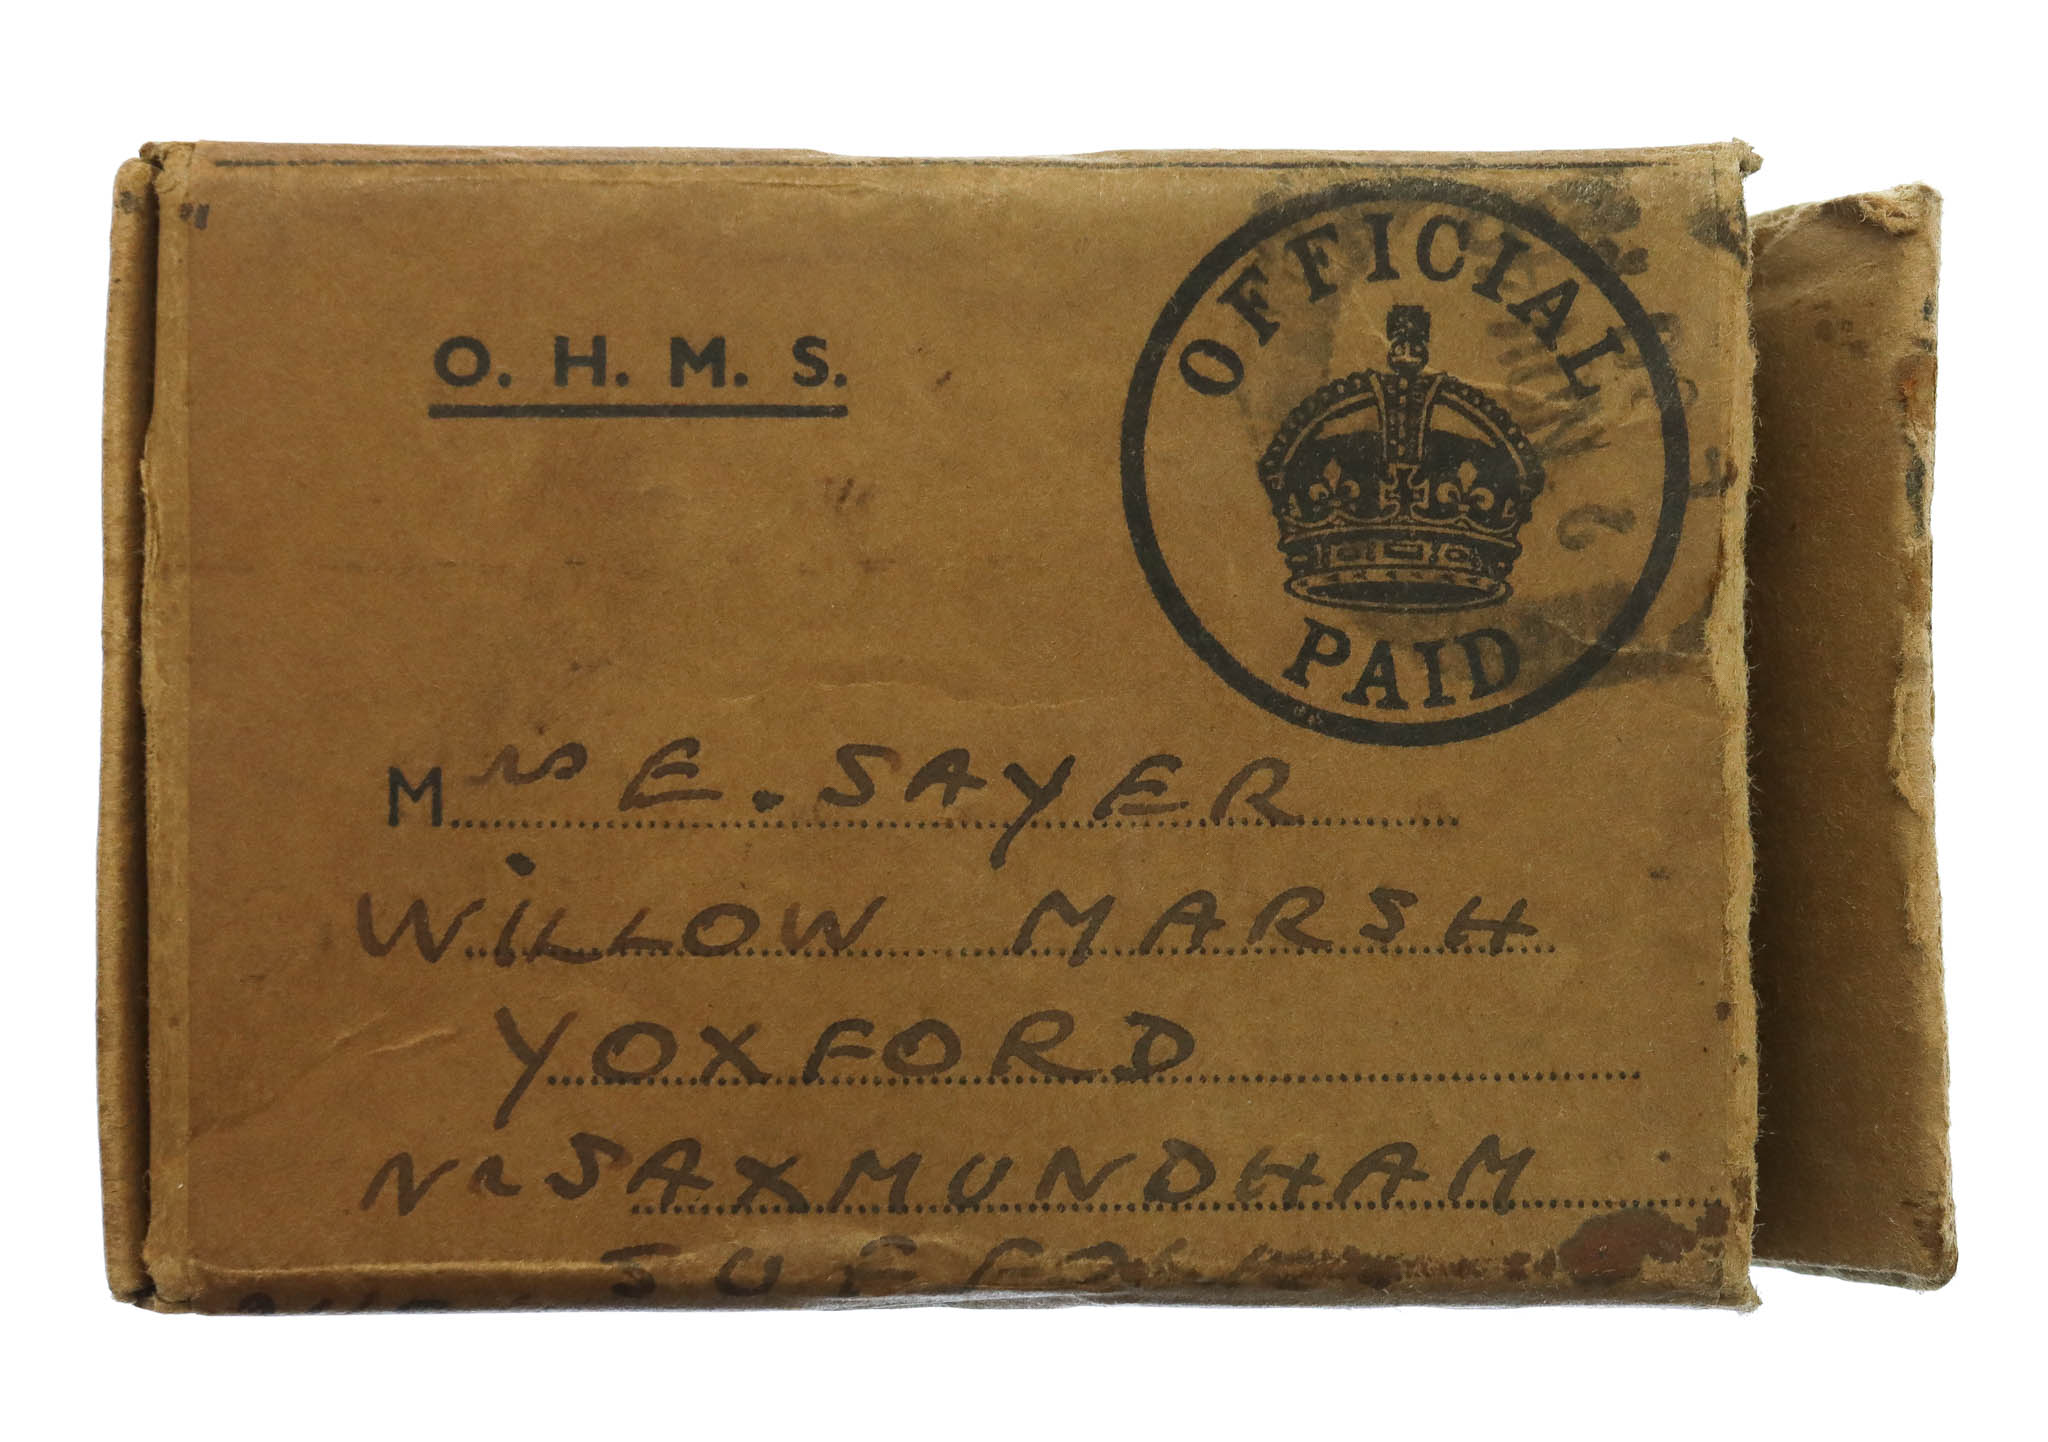 O. H. M. S.
OFFICIAL
PAID
Mrs E. SAYER
WiLLOW MARSH
YOXFORD
Nr SAXMUNDHAM
SUFFOLK